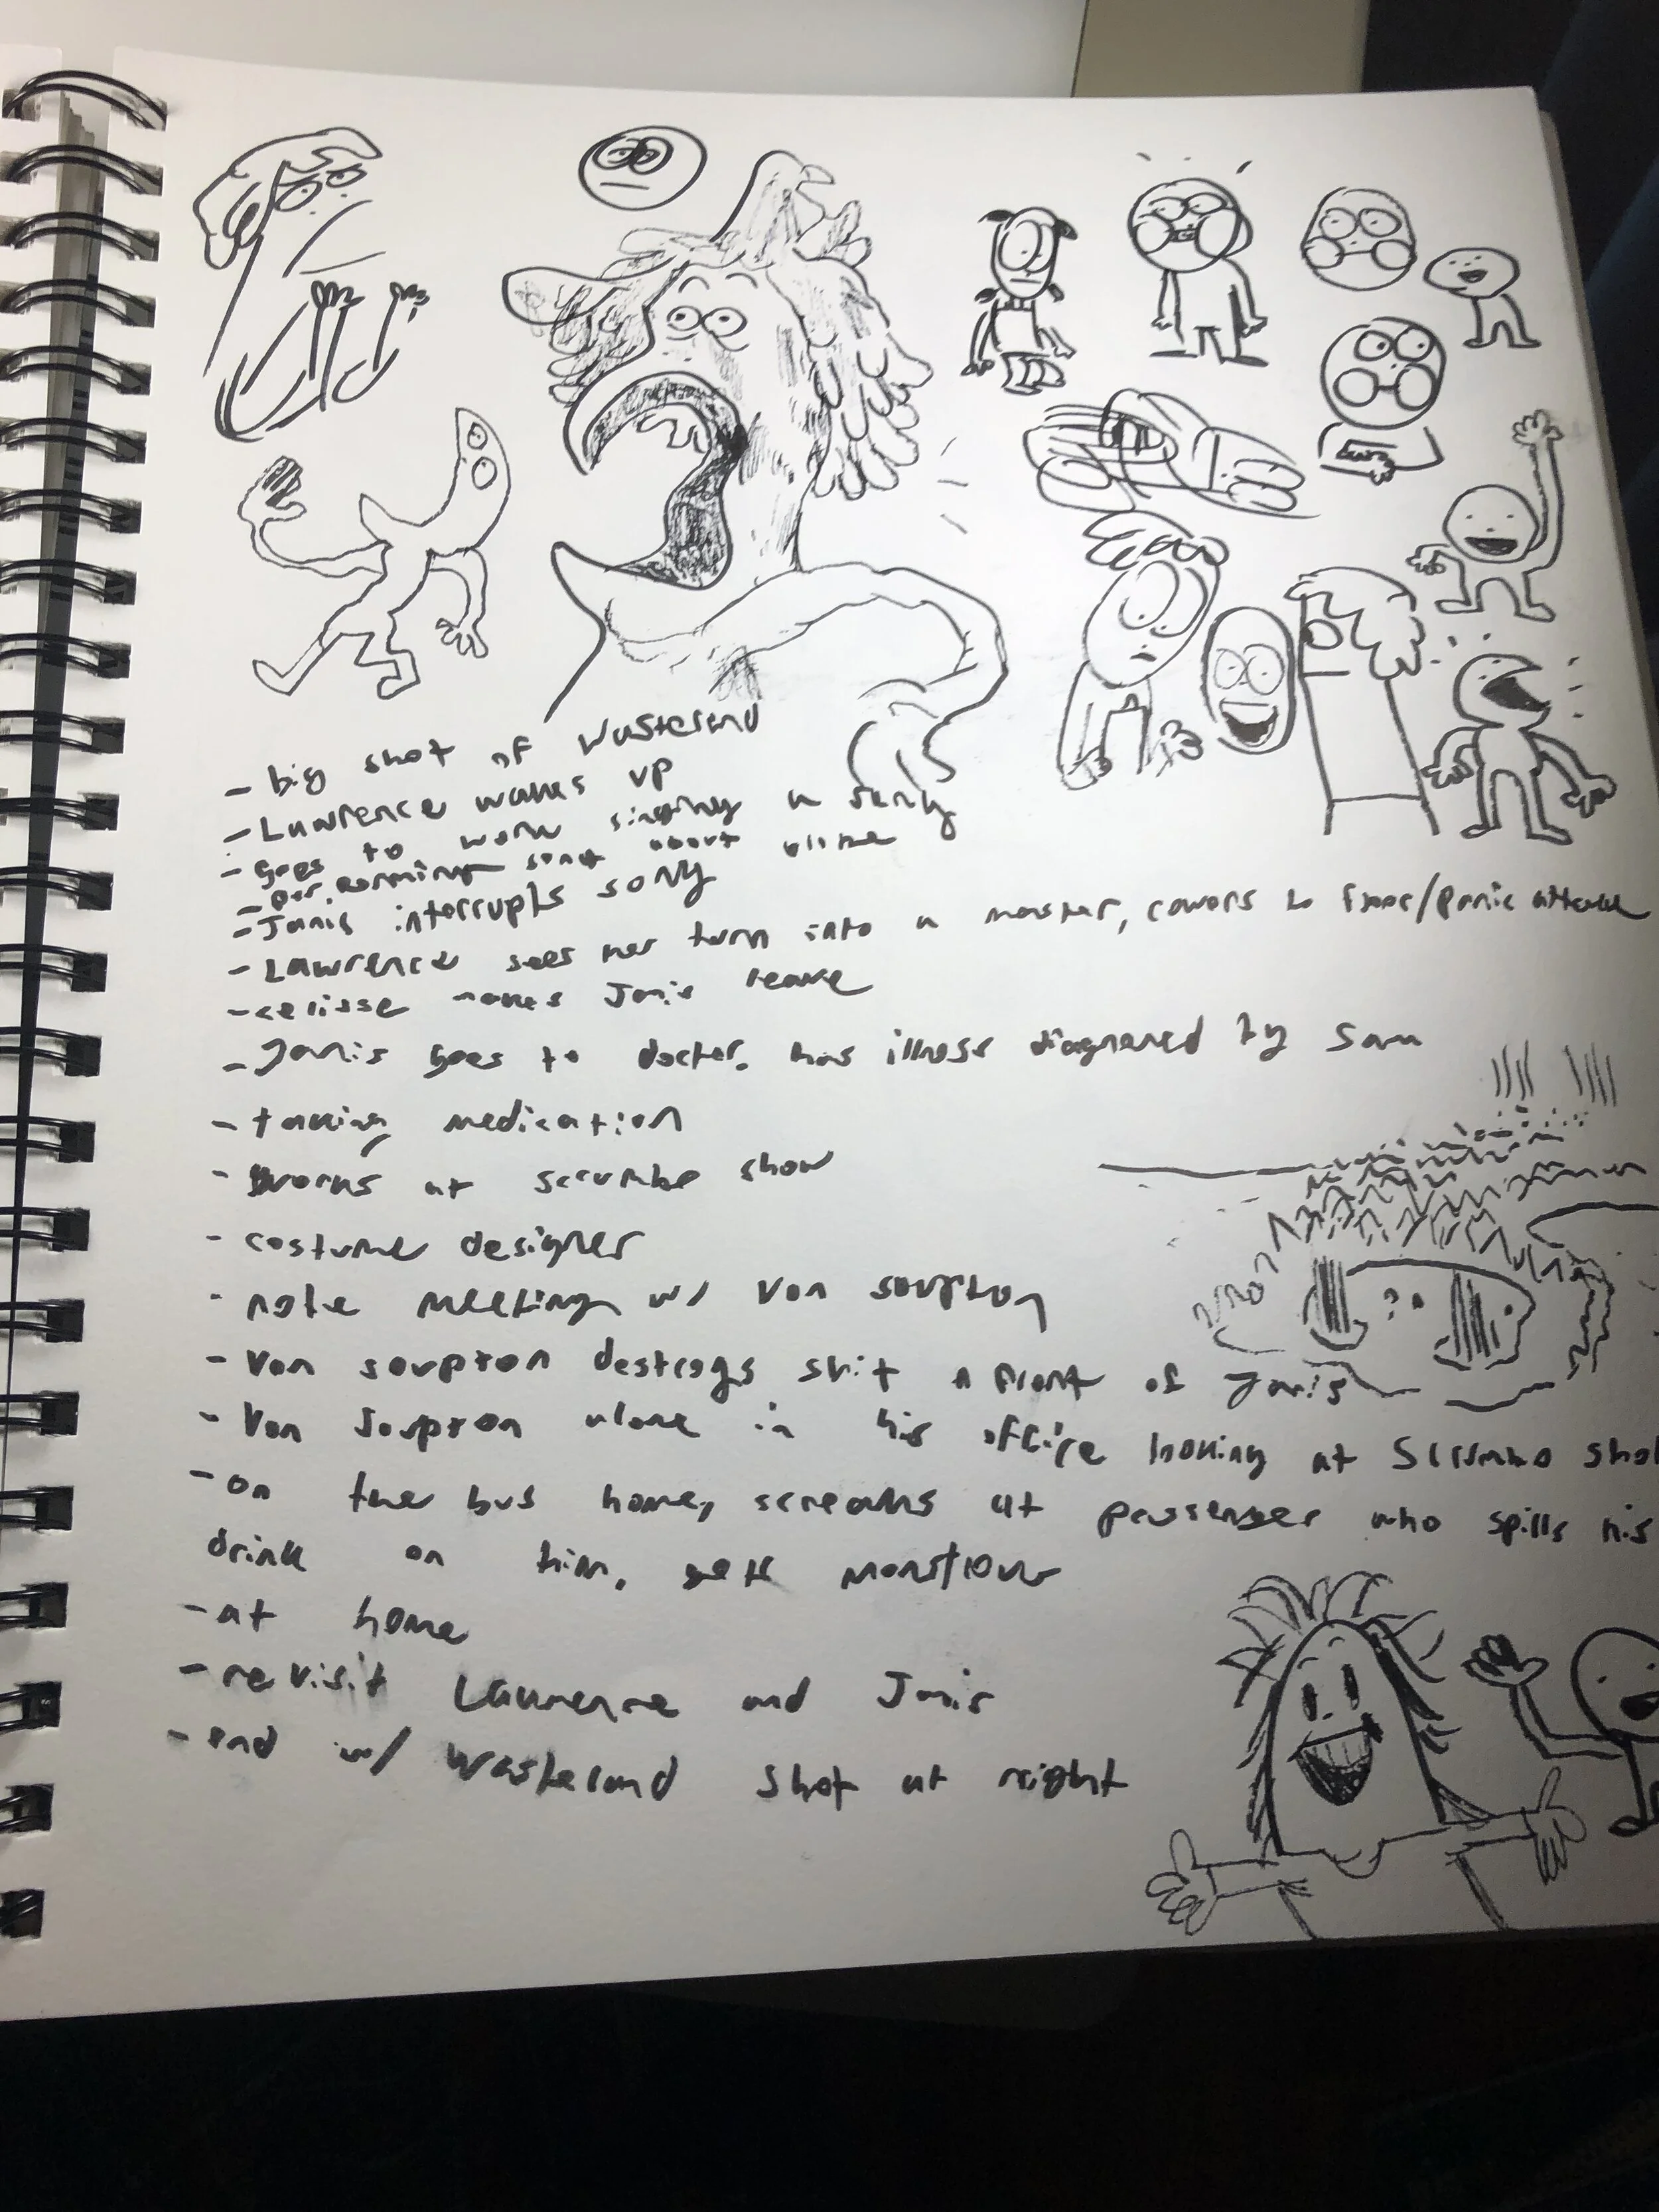 - big shot of wasteland
- Lawrence wakes up
- goes to work singing a song
- performing song about
- Janis interrupts song
- Lawrence sees her turn into a monster, cowers to floor/panic attack
- celisse makes Janis leave
- Janis goes to doctor, has illness diagnosed by Sam
- taking medication
- works at scrumbo show
- costume designer
- note meeting w/ Von sorpton
- Von sorpton destroys shit n front of Janis
- Von sorpton alone in his office looking at Scrumbo sho
- on the bus home, screams at passenger who spills his
drink on him, gets monstrous
- at home
- revisit Lawrence and Janis
- end w/ wasteland shot at night